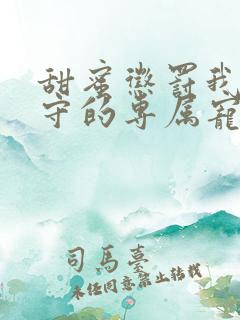 甜蜜懲罰我
守的專屬寵
司馬臺
未经同意禁止转载